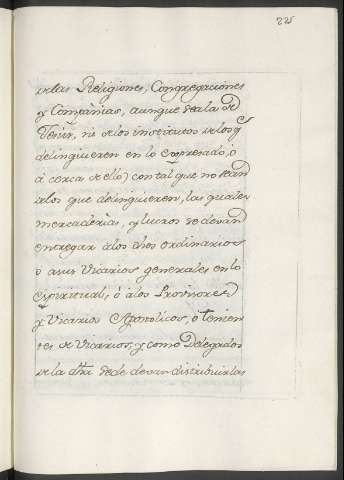 225
delas Religiones, Congregaciones
y Compañias, aunque sea la de
Jesus, ni de los institutos de los q
delinquieren en lo expresado, ó
á cerca de ello) con tal que no sean
alos que delinquieren, las quales
mercaderia, y lucros se devan
entregar álos dhos ordinarios
o asus Vicarios generales en lo
espiritual, ó álos Provisores
y Vicarios Apostolicos, ó tenien
tes de Vicarios, y como Delegados
dela dha Sede devan distribuirlas